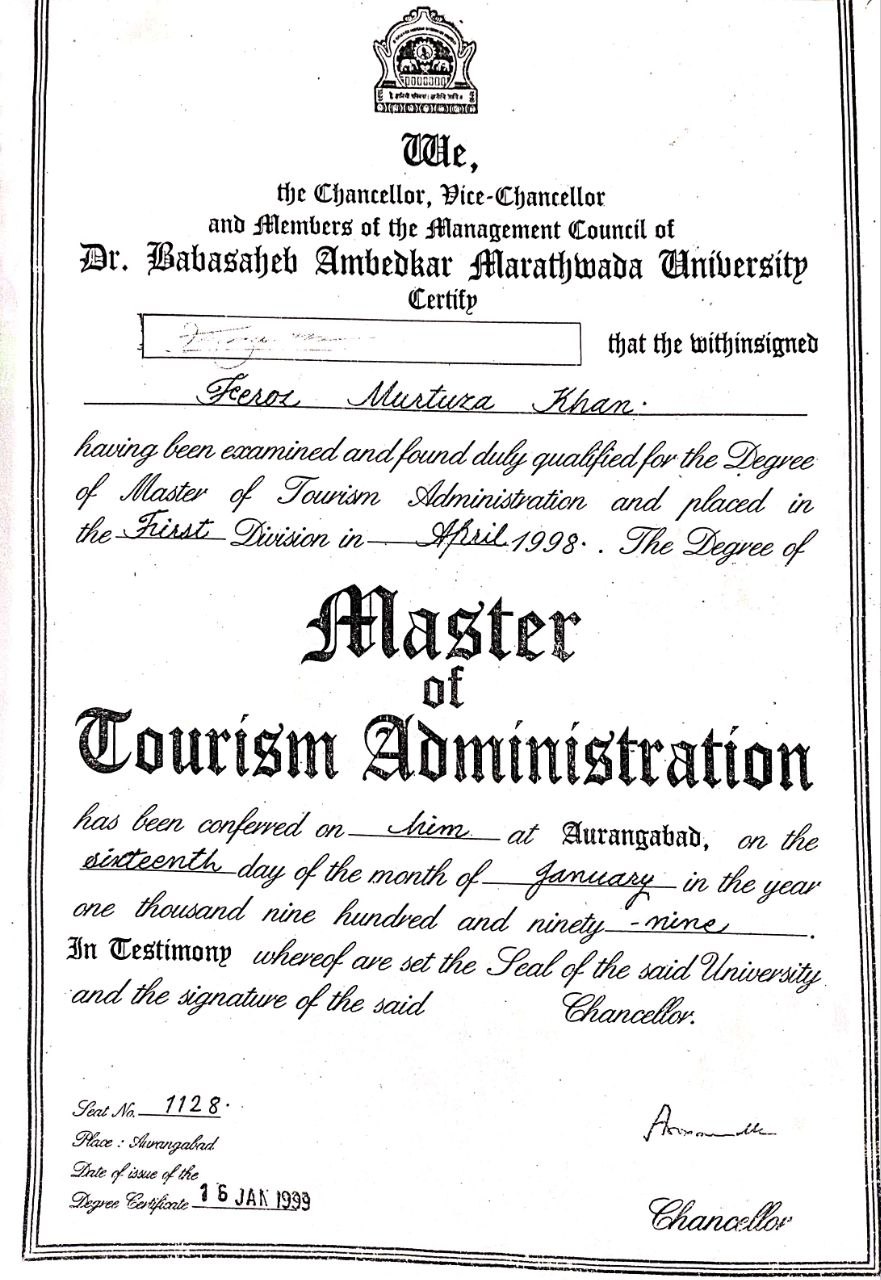 We,
the Chancellor, Vice-Chancellor
and Members of the Management Council of
Dr. Babasaheb Ambedkar Marathwada University
Certify
that the withinsigned
Feroz Murtuza Khan.
having been examined and found duly qualified for the Degree
of Master of Tourism Administration and placed in
the First Division in April 1998. . The Degree of
Master
of
Tourism Administration
has been conferred on him at Aurangabad, on the
sixteenth day of the month of January in the year
one thousand nine hundred and ninety -nine.
In Testimony whereof are set the Seal of the said University
and the signature of the said Chancellor.
Seat No. 1128.
Place : Aurangabad
Date of issue of the
Degree Certificate 16 JAN 1999
Chancellor